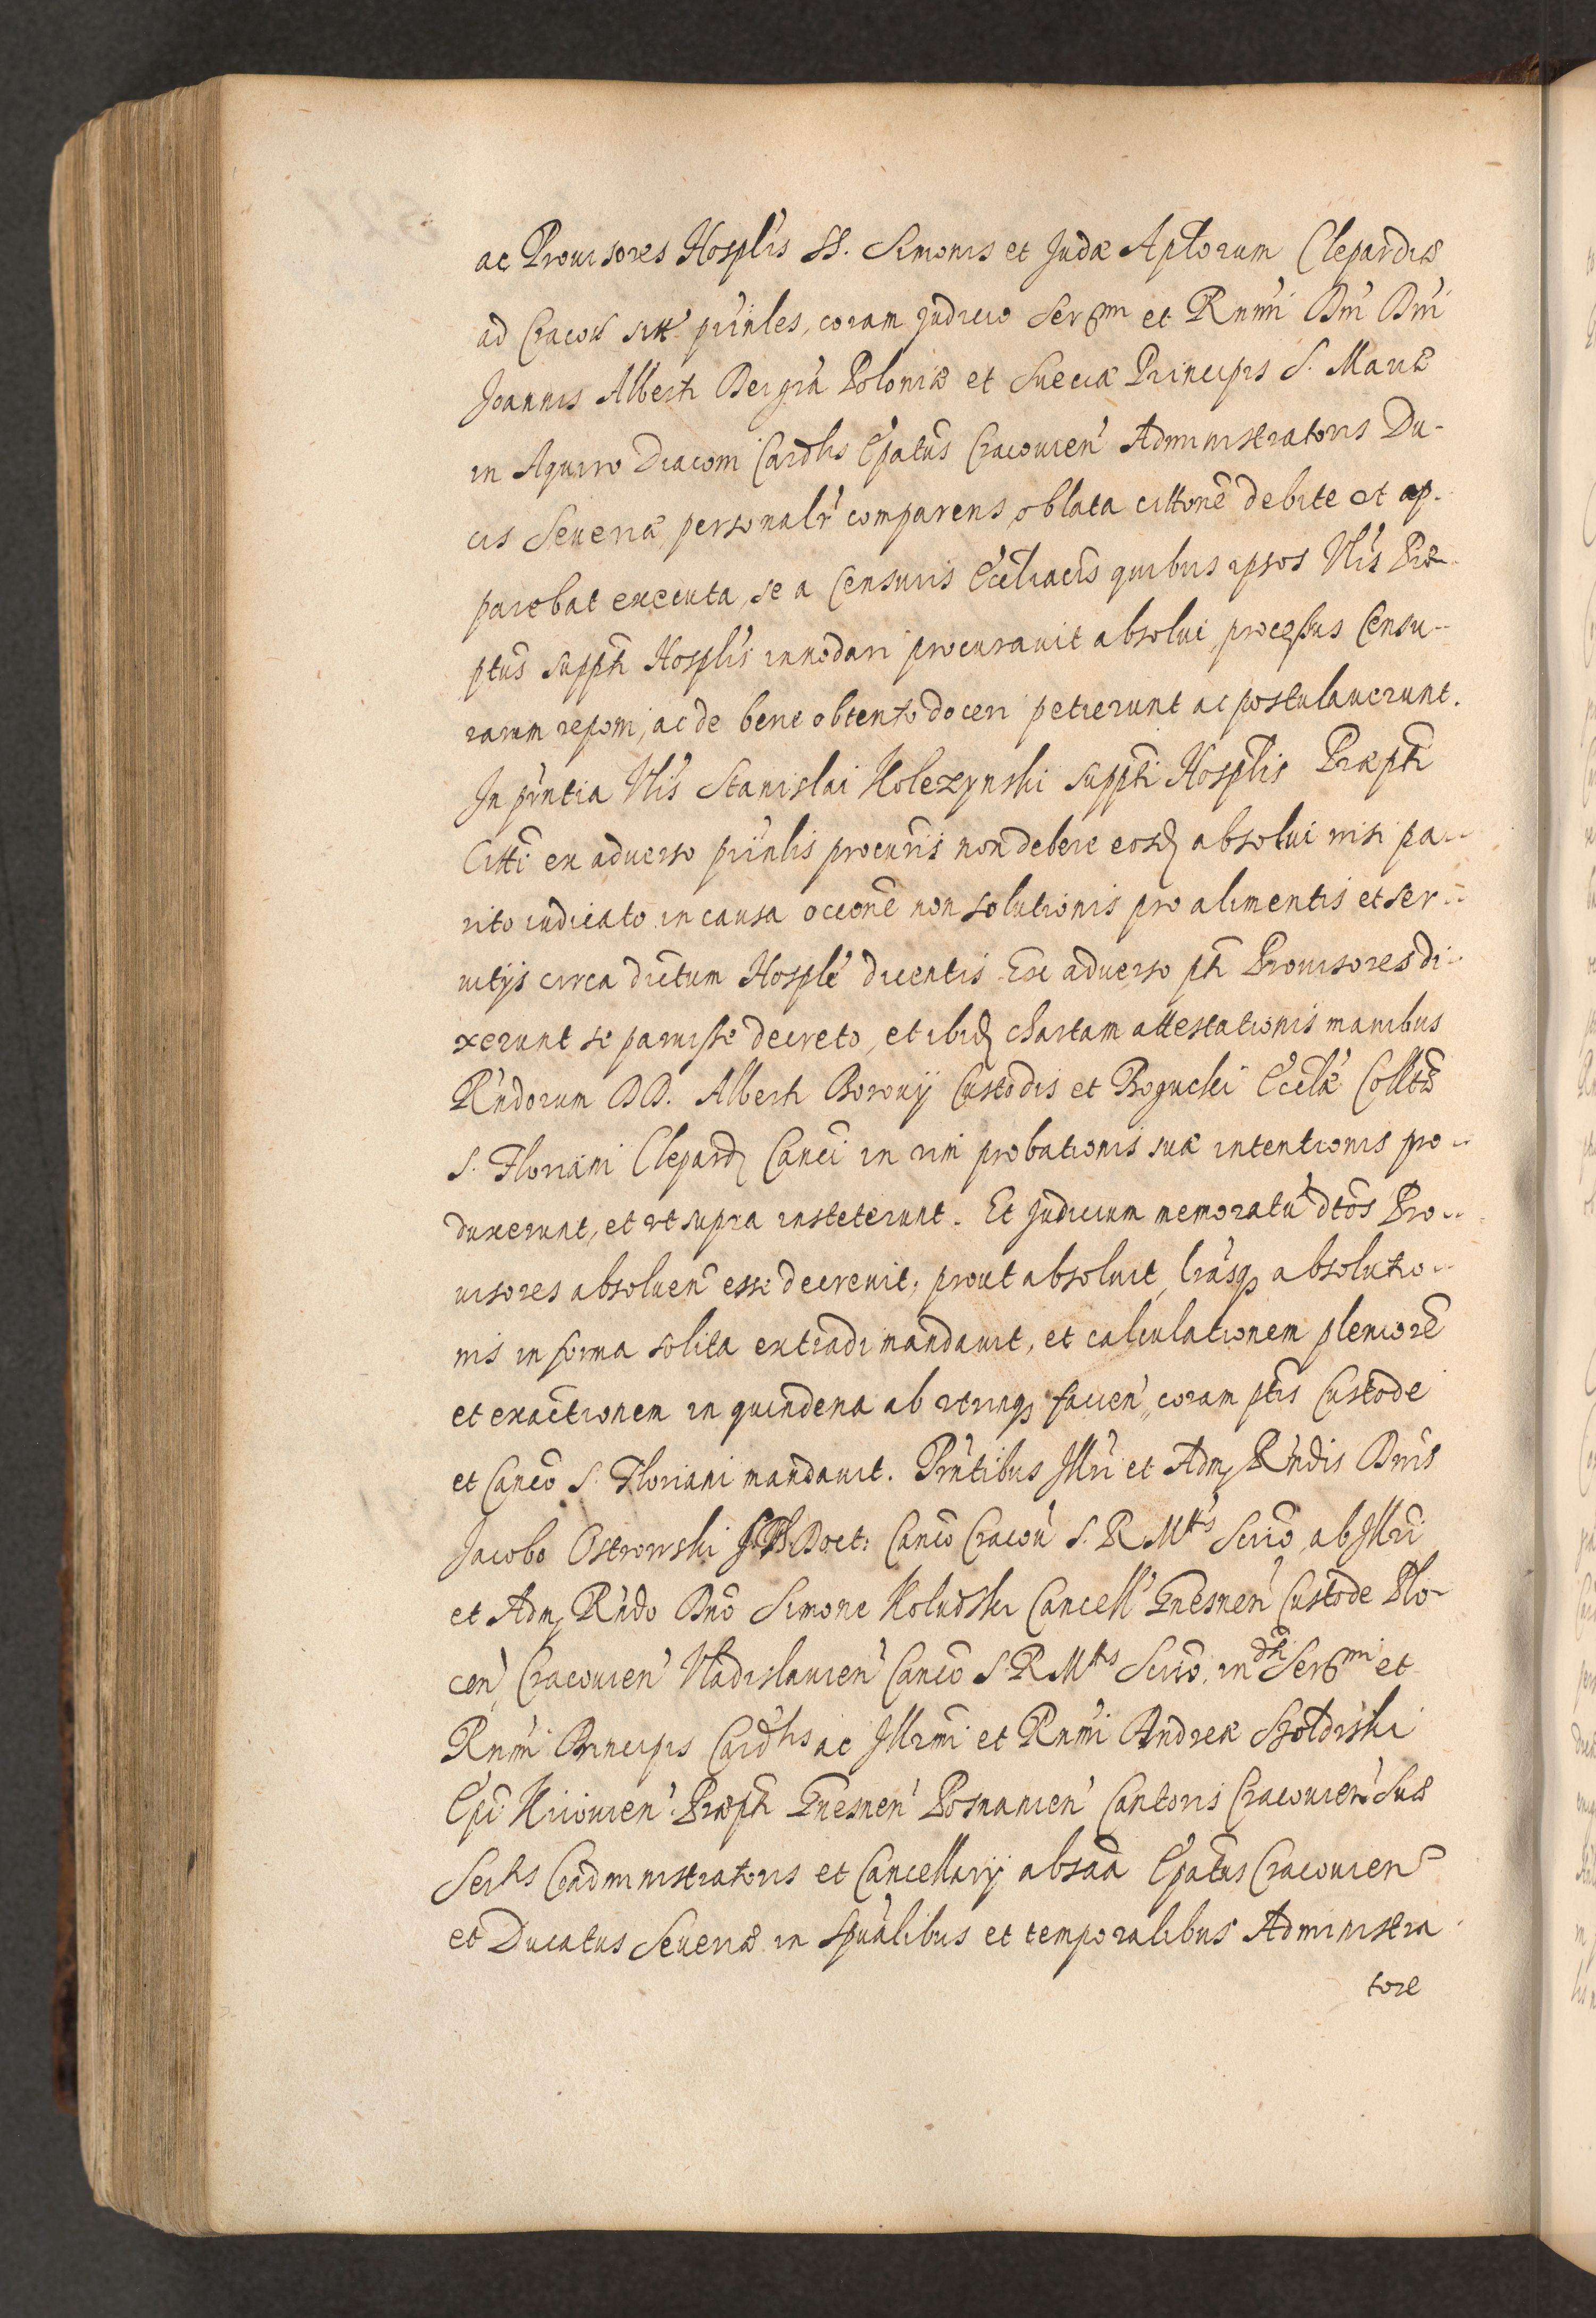 ac Prouisores Hosplis SS. Simonis et Judæ Aptorum Clepardiæ
ad Cracou sitt prinles, coram Judicio Sermi et Rnmi Dni Dni
Joannis Alberti Dei gra Poloniæ et Sueciæ Principis S. Mariæ
in Aquiro Diaconi Cardlis Epatus Cracouien Administratoris Du-
cis Seueriæ personalr comparens, oblata cittone debite ut ap-
parebat executa, se a Censuris Eccliacis quibus ipsos Nlis Præ-
ptus suppti Hosplis innodari procurauit absolui, processus Censu-
rarum reponi, ac de bene obtento doceri petierunt ac postulauerunt.
In pntia Nlis Stanislai Kolczynski suppti Hosplis Præpti
Citti ex aduerso prinlis procuris non debere eosd absolui nisi pa-
rito iudicato in causa occone non solutionis pro alimentis et ser-
uitijs circa dictum Hosple dicentis. Ex aduerso pti Prouisores di-
xerunt se paruisse decreto, et ibid chartam attestationis manibus
Rndorum DD. Alberti Borouij Custodis et Bogucki Eccliæ Colltæ
S. Floriani Clepard Canci in vim probationis suæ intentionis pro-
duxerunt, et vt supra institerunt. Et Judicium memoratu dtos Pro-
uisores absoluen esse decreuit, prout absoluit, lrasq absolutio-
nis in forma solita extradi mandauit, et calculationem pleniore
et exactionem in quindena ab vtrinq facien, coram ptis Custode
et Canco S. Floriani mandauit. Pntibus Illri et Adm Rndis Dnis
Jacobo Ostrowski Doct: Canco Cracou S. R. Mtis Scrio, ab Illri
et Adm Rndo Dno Simone Koludzki Cancell Gnesnen Custode Plo-
cen, Cracouien Vladislauien Canco S. R. Mtis Scrio, in dti Sermi et
Rnmi Principis Cardlis ac Illrmi et Rnmi Andreæ Szoldrski
Epi Kiiouien Præpti Gnesnen Posnanien Cantoris Cracouien Suæ
Sertis Coadministratoris et Cancellarij absaa Epatus Cracouien
et Ducatus Seueriæ in Spualibus et temporalibus Administra-
tore